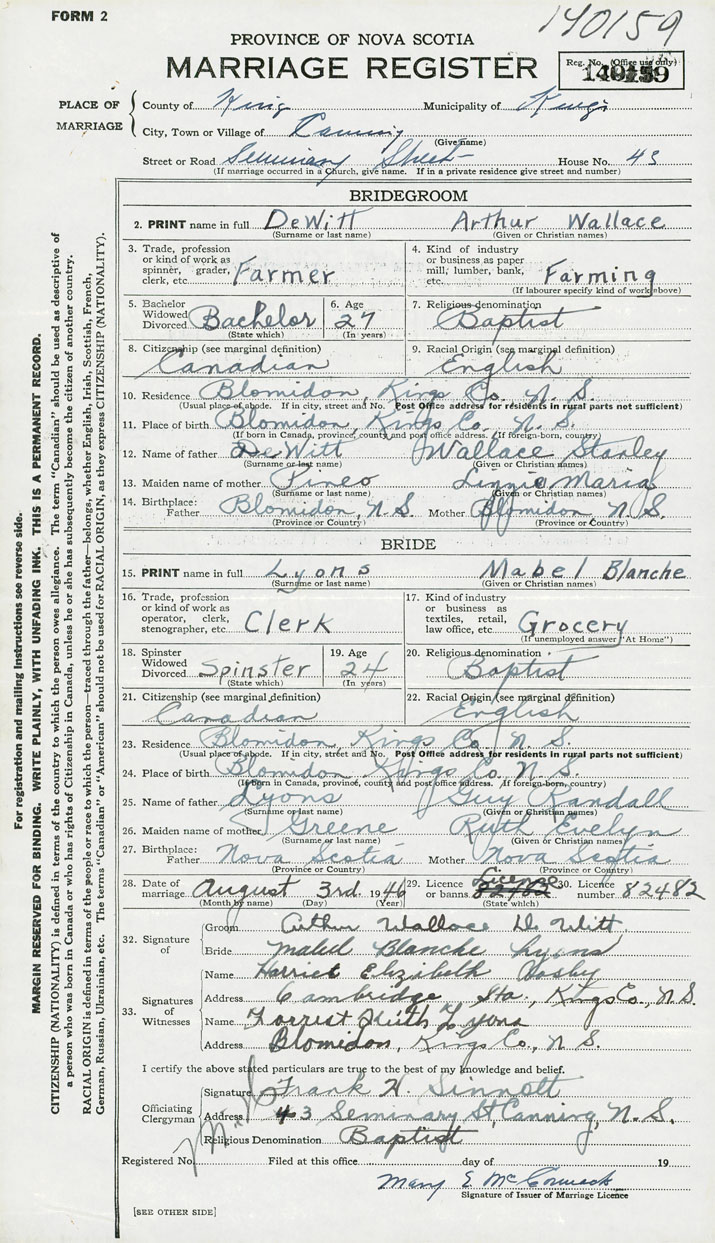 FORM 2
140159
PROVINCE OF NOVA SCOTIA
MARRIAGE REGISTER
Reg. No. (Office use only)
PLACE OF MARRIAGE
County of King Municipality of Kings
City, Town or Village of Canning
(Give name)
Street or Road Seminary Street House No. 43
(If marriage occurred in a Church, give name. If in a private residence give street and number)
BRIDEGROOM
2. PRINT name in full DeWitt Arthur Wallace
(Surname or last name) (Given or Christian names)
3. Trade, profession or kind of work as spinner, grader, clerk, etc. Farmer
4. Kind of industry or business as paper mill, lumber, bank, etc. Farming
(If labourer specify kind of work above)
5. Bachelor Widowed Divorced Bachelor (State which)
6. Age 27 (In years)
7. Religious denomination Baptist
8. Citizenship (see marginal definition) Canadian
9. Racial Origin (see marginal definition) English
10. Residence Blomidon, Kings Co. N. S.
(Usual place of abode. If in city, street and No. Post Office address for residents in rural parts not sufficient)
11. Place of birth Blomidon, Kings Co. N. S.
(If born in Canada, province, county and post office address. If foreign-born, country)
12. Name of father DeWitt Wallace Stanley
(Surname or last name) (Given or Christian names)
13. Maiden name of mother Pineo Linnie Maria
(Surname or last name) (Given or Christian names)
14. Birthplace: Father Blomidon, N. S. Mother Blomidon, N. S.
(Province or Country) (Province or Country)
BRIDE
15. PRINT name in full Lyons Mabel Blanche
(Surname or last name) (Given or Christian names)
16. Trade, profession or kind of work as operator, clerk, stenographer, etc. Clerk
17. Kind of industry or business as textiles, retail, law office, etc. Grocery
(If unemployed answer "At Home")
18. Spinster Widowed Divorced Spinster (State which)
19. Age 24 (In years)
20. Religious denomination Baptist
21. Citizenship (see marginal definition) Canadian
22. Racial Origin (see marginal definition) English
23. Residence Blomidon, Kings Co. N. S.
(Usual place of abode. If in city, street and No. Post Office address for residents in rural parts not sufficient)
24. Place of birth Blomidon Kings Co. N. S.
(If born in Canada, province, county and post office address. If foreign-born, country)
25. Name of father Lyons Guy Randall
(Surname or last name) (Given or Christian names)
26. Maiden name of mother Greene Ruth Evelyn
(Surname or last name) (Given or Christian names)
27. Birthplace: Father Nova Scotia Mother Nova Scotia
(Province or Country) (Province or Country)
28. Date of marriage August 3rd 1946
(Month by name) (Day) (Year)
29. Licence or banns Licence (State which)
30. Licence number 82482
32. Signature of
Groom Arthur Wallace DeWitt
Bride Mabel Blanche Lyons
33. Signatures of Witnesses
Name Harriet Elizabeth
Address Cambridge Sta, Kings Co., N.S.
Name Forrest Keith Lyons
Address Blomidon, Kings Co., N. S.
I certify the above stated particulars are true to the best of my knowledge and belief.
Officiating Clergyman
Signature Frank H. Sinnott
Address 43 Seminary St, Canning, N. S.
Religious Denomination Baptist
Registered No. Filed at this office day of 19
Mary E McCormack
Signature of Issuer of Marriage Licence
[SEE OTHER SIDE]
For registration and mailing instructions see reverse side.
MARGIN RESERVED FOR BINDING. WRITE PLAINLY, WITH UNFADING INK. THIS IS A PERMANENT RECORD.
CITIZENSHIP (NATIONALITY) is defined in terms of the country to which the person owes allegiance. The term "Canadian" should be used as descriptive of
a person who was born in Canada or who has rights of Citizenship in Canada, unless he or she has subsequently become the citizen of another country.
RACIAL ORIGIN is defined in terms of the people or race to which the person—traced through the father—belongs, whether English, Irish, Scottish, French,
German, Russian, Ukrainian, etc. The terms "Canadian" or "American" should not be used for RACIAL ORIGIN, as they express CITIZENSHIP (NATIONALITY).